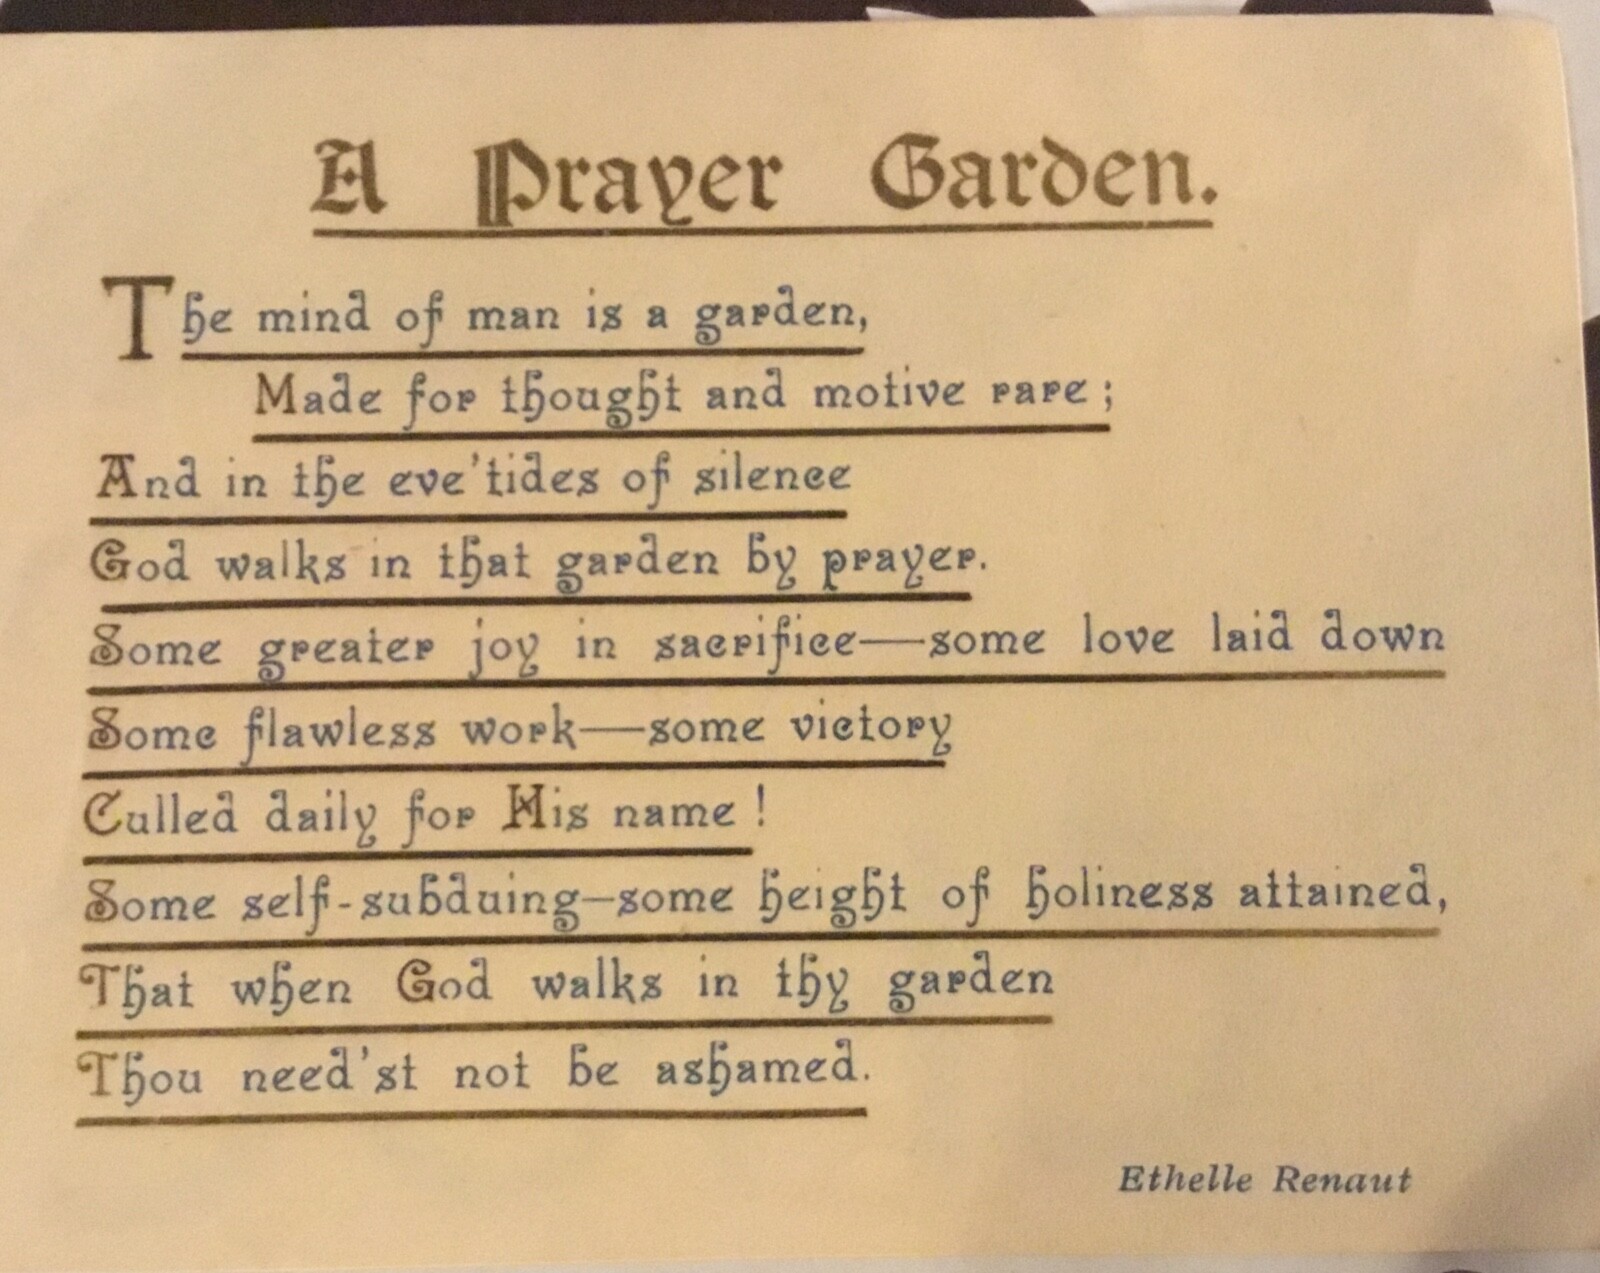 A Prayer Garden.
The mind of man is a garden,
Made for thought and motive rare ;
And in the eve'tides of silence
God walks in that garden by prayer.
Some greater joy in sacrifice—some love laid down
Some flawless work—some victory
Culled daily for His name !
Some self-subduing—some height of holiness attained,
That when God walks in thy garden
Thou need'st not be ashamed.
Ethelle Renaut